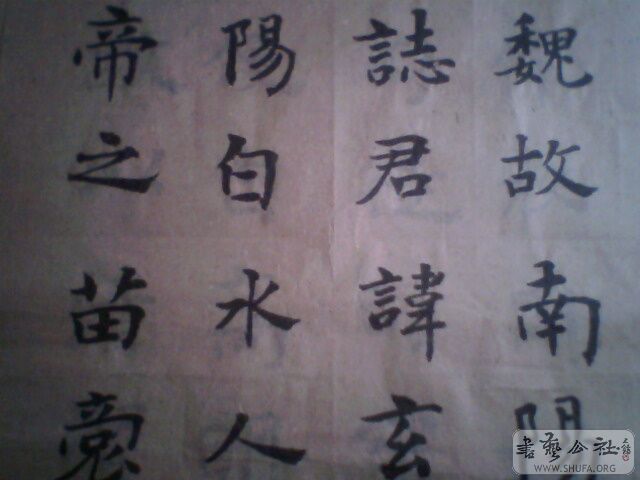 魏故南陽
誌君諱玄
陽白水人
帝之苗裔
書藝公社
WWW.SHUFA.ORG